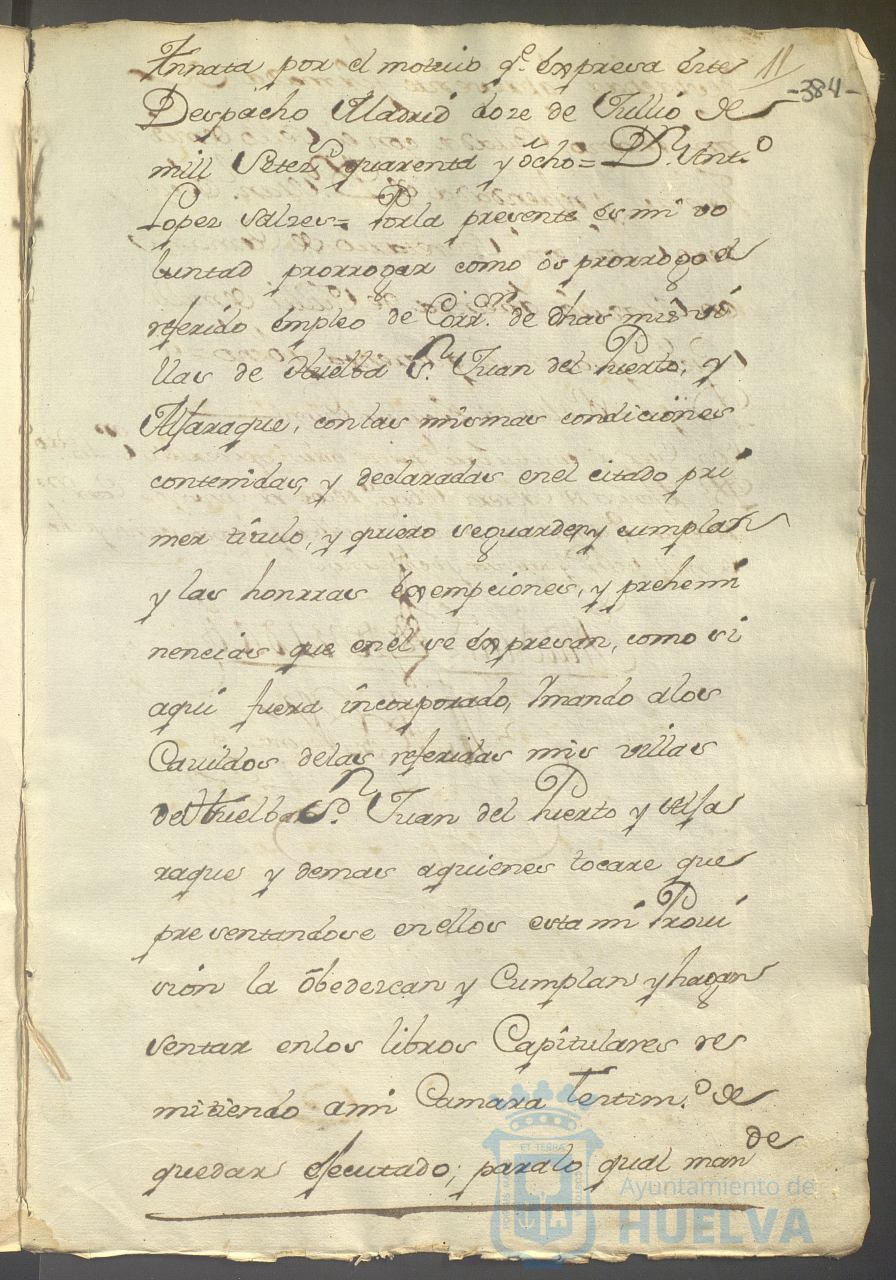 11
-384-
Annata por el motiuo q.e expresa este
Despacho Madrid doze de Jullio de
mill Setez.s quarenta y ôcho= D.n Ant.o
Lopez Salzes= Porla presente es mi vo
luntad prorrogar como ôs prorrogo el
referido êmpleo de Corr.or de dhas mis vi
llas de Huelba S.n Juan del Puerto, y
Aljaraque, con las mismas condiciônes
contenidas, y declaradas enel citado pri
mer titulo, y quiero seguarden y cumplan
y las honrras êxempciones, y prehemi
nencias que enel se êxpresan, como si
aqui fuera incorporado, Ymando alos
Cauildos delas referidas mis villas
de Huelba S.n Juan del Puerto y Alja
raque y demas aquienes tocare que
presentandose enellos esta mi Proui
sión la ôbedezcan y Cumplan y hagan
sentar enlos libros Capitulares re
mitiendo ami Camara Testim.o de
quedar ejecutado; paralo qual man
de
ET TERRAE
Ayuntamiento de
HUELVA